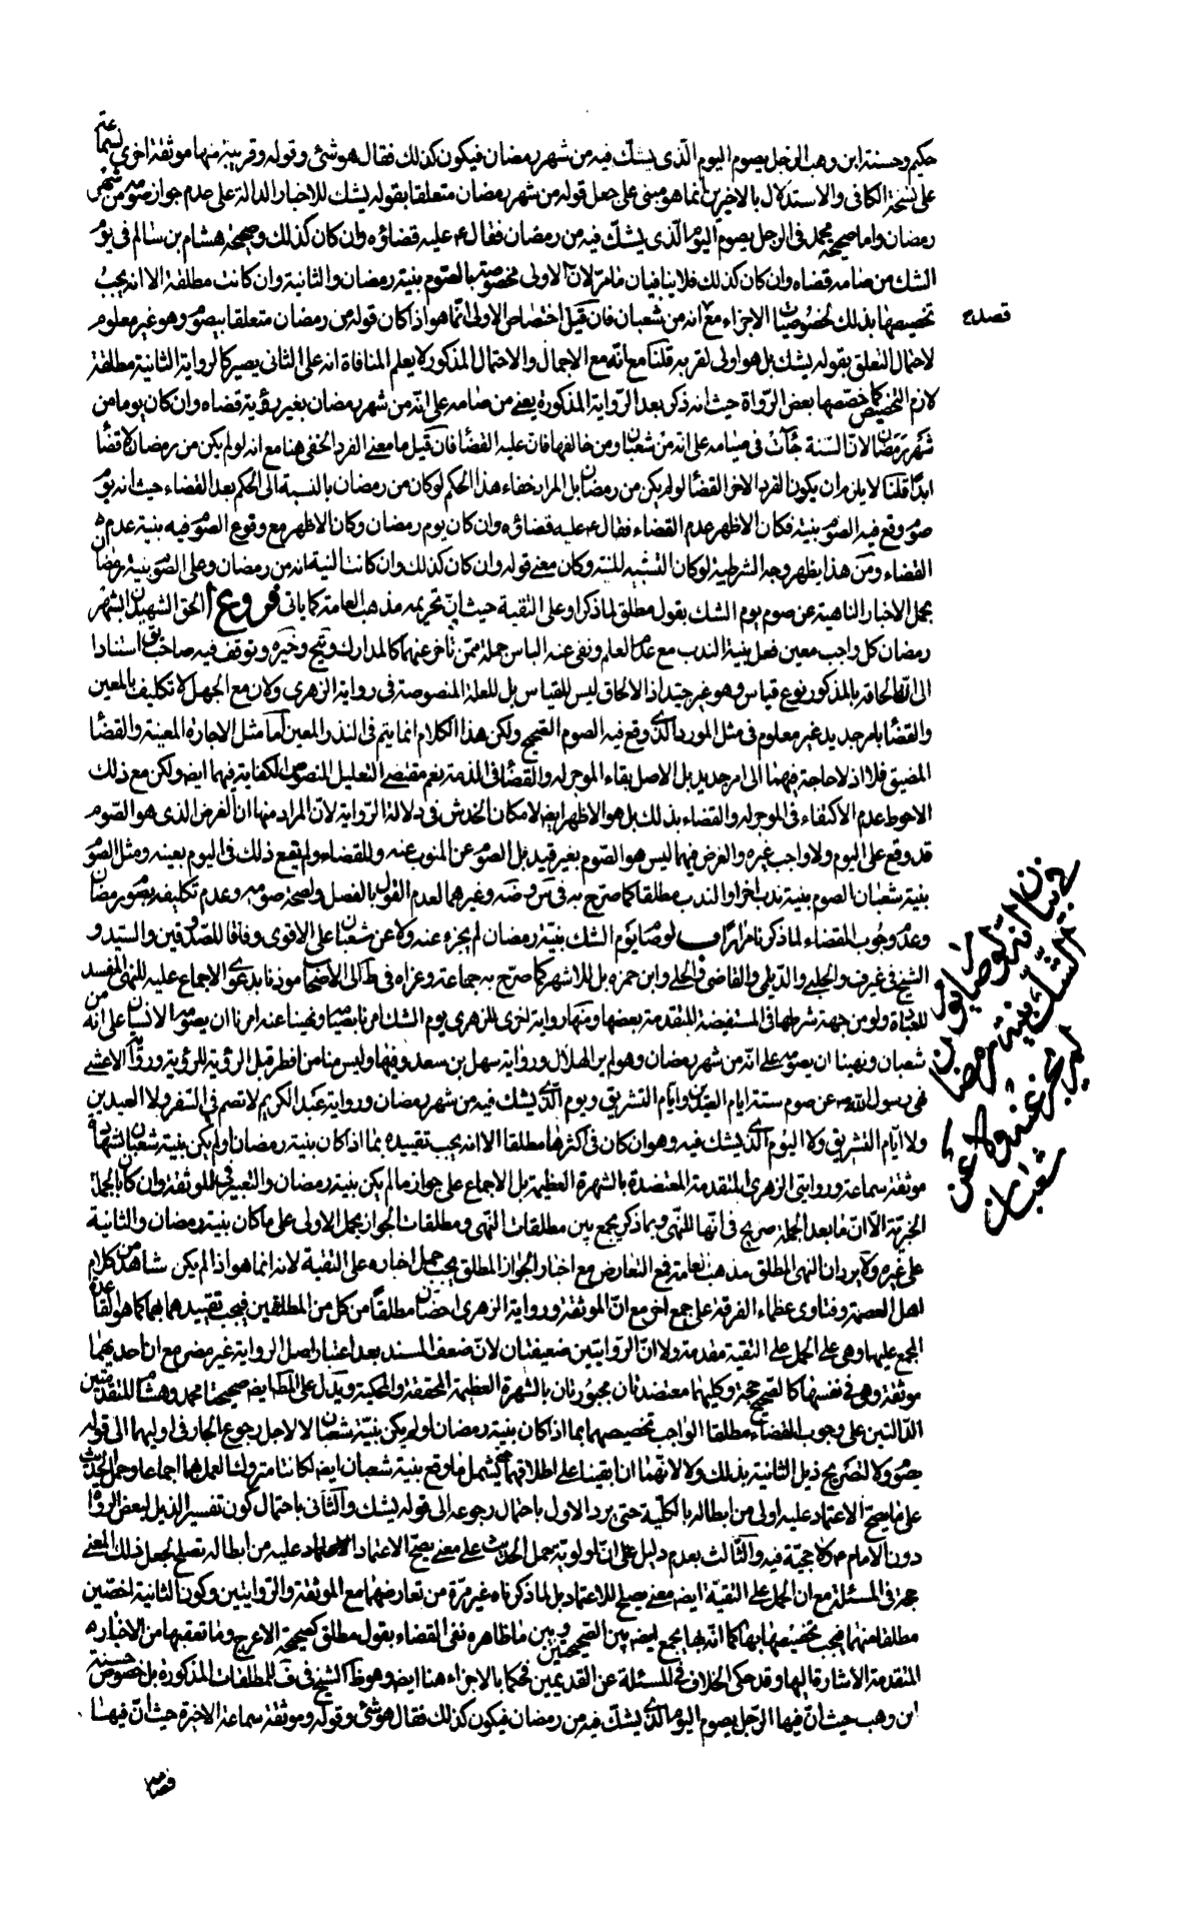 حكيم وحسنة ابن وهب الرجل يصوم اليوم الّذى يشكّ فيه من شهر رمضان فيكون كذلك فقال هو شئ وفّق له وقريبة منها موثقة اخرى لسماعة
على نسخة الكافى والاستدلال بالاخيرين انما هو مبنى على جعل قوله من شهر رمضان متعلقا بقوله يشك للاخبار الدالة على عدم جواز صومه من شهر
رمضان واما صحيحة محمد فى الرجل يصوم اليوم الّذى يشكّ فيه من رمضان فقال ع عليه قضاؤه وان كان كذلك وصحيحة هشام بن سالم فى يوم
الشك من صامه قضاه وان كان كذلك فلا ينافيان ما مرّ لانّ الاولى مخصوصة بالصّوم بنية رمضان والثانية وان كانت مطلقة الا انه يجب
تخصيصها بذلك لخصوصيات الاجزاء مع انه من شعبان فان قيل اختصاص الاولى انّما هو اذا كان قوله من رمضان متعلقا بيصوم وهو غير معلوم
لاحتمال التعلق بقوله يشك بل هو اولى لقربه قلنا مع انّه مع الاجمال والاحتمال المذكور لا يعلم المنافاة انه على الثانى يصير كالرواية الثانية مطلقة
لازم التخصيص كما خصّصها بعض الرّواة حيث انه ذكر بعد الرّواية المذكورة يعنى من صامه على انّه من شهر رمضان بغير رؤية قضاه وان كان يوما من
شهر رمضان لانّ السنة جاءت فى صيامه على انّه من شعبان ومن خالفها فانّ عليه القضاء فان قيل ما معنى الفرد الخفى هنا مع انه لو لم يكن من رمضان لا قضاء
ابدا قلنا لا يلزم ان يكون الفرد الاخر القضاء لو لم يكن من رمضان بل المراد خفاء هذا الحكم لو كان من رمضان بالنسبة الى الحكم بعد القضاء حيث انه يوم
صوم وقع فيه الصّوم بنية فكان الاظهر عدم القضاء فقال ع عليه قضاؤه وان كان يوم رمضان وكان الاظهر مع وقوع الصّوم فيه بنية عدم
القضاء ومن هذا يظهر وجه الشرطية لو كان التشبيه للنية وكان معنى قوله وان كان كذلك وان كانت النية انه من رمضان وعلى الصّوم بنية رمضان
يحمل الاخبار الناهية عن صوم يوم الشك بقول مطلق لما ذكر او على التقية حيث انّ تحريمه مذهب العامة كما ياتى فروع ا الحق الشهيدان بشهر
رمضان كل واجب معين فعل بنية الندب مع عدم العلم ونفى عنه الباس جملة ممّن تاخر عنهما كالمدارك وخيره وتوقف فيه صاحب استنادا
الى انّ الحاقه بالمذكور نوع قياس وهو غير جيّد اذ الالحاق ليس للقياس بل للعلة المنصوصة فى رواية الزهرى ولان مع الجهل لا تكليف بالمعين
والقضاء بامر جديد غير معلوم فى مثل المورد الذى وقع فيه الصوم الصحيح ولكن هذا الكلام انما يتم فى النذر المعين اما مثل الاجارة المعينة والقضاء
المضيق فلا اذ لا حاجة فيهما الى امر جديد بل الاصل بقاء الموجر له والقضاء فى الذمة نعم مقتضى التعليل المنصوص الكفاية فيهما ايضا ولكن مع ذلك
الاحوط عدم الاكتفاء فى الموجر له والقضاء بذلك بل هو الاظهر ايضا لامكان الخدش فى دلالة الرّواية لانّ المراد منها انّ الفرض الذى هو الصّوم
قد وقع على اليوم ولا واجب غيره والفرض فيهما ليس هو الصّوم بغير قيد بل الصّوم عن المنوب عنه وللقضاء ولم يقع ذلك فى اليوم بعينه ومثل الصّوم
بنية شعبان الصوم بنية ندب اخر او الندب مطلقا كما صرّح به فى وغيرهما لعدم القول بالفصل ولصحة صومه وعدم تكليفه بصوم رمضان
وعدم وجوب القضاء لما ذكرنا مرارا ب لو صام يوم الشك بنيّة رمضان لم يجزه عنه ولا عن شعبان على الاقوى وفاقا للصّدوقين والسيّد و
الشيخ فى غير ف والحلبى والدّيلمى والقاضى والحلى وابن حمزه بل للاشهر كما صرّح به جماعة وعزاه فى الى الاصحاب موذنا بدعوى الاجماع عليه للنّهى المفسد
للعبادة ولو من جهة شرطها فى المستفيضة المتقدمة بعضها ومنها رواية اخرى للزهرى يوم الشك امرنا بصيامه ونهينا عنه امرنا ان يصومه الانسان على انّه من
شعبان ونهينا ان يصومه على انّه من شهر رمضان وهو لم ير الهلال ورواية سهل بن سعد وفيها وليس منا من افطر قبل الرّؤية للرّؤية ورواية الاعشى
نهى رسول الله ص عن صوم ستة ايام العيدين وايّام التشريق ويوم الّذى يشك فيه من شهر رمضان ورواية عبد الكريم لا تصم فى السّفر ولا العيدين
ولا ايّام التشريق ولا اليوم الذى يشك فيه وهو ان كان فى اكثرها مطلقا الا انه يجب تقييده بما اذا كان بنية رمضان او لم يكن بنية شعبان لشهادة
موثقة سماعة وروايتى الزهرى المتقدمة المعتضدة بالشهرة العظيمة بل الاجماع على جواز ما لم يكن بنية رمضان والتعبير فى الموثقة وان كان بالجملة
الخبريّة الّا انّ ما بعد الجملة صريح فى انّها للنّهى وبما ذكر يجمع بين مطلقات النّهى ومطلقات الجواز بحمل الاولى على ما كان بنية رمضان والثانية
على غيره ولا يرد ان النهى المطلق مذهب العامة فمع التعارض مع اخبار الجواز المطلق يجب حمل اخباره على التقية لانه انما هو اذا لم يكن شاهد من كلام
اهل العصمة وفتاوى عظماء الفرقة على جمع اخر مع انّ الموثقة ورواية الزهرى اخصّان مطلقا من كل من المطلقين فيجب تقييدهما بهما كما هو القاعدة
المجمع عليها وهى على الحمل على التقية مقدمة ولا انّ الرّوايتين ضعيفتان لانّ ضعف السند بعد اعتبار اصل الرواية غير مضر مع ان احديهما
موثقة وهى فى نفسها كالصحيح حجة وكليهما معتضدتان مجبورتان بالشهرة العظيمة المحققة والمحكية ويدلّ على المط ايضا صحيحتا محمد وهشام المتقدمتين
الدّالتين على وجوب القضاء مطلقا الواجب تخصيصهما بما اذا كان بنية رمضان او لم يكن بنيّة شعبان لا لاجل رجوع الجار فى اوليهما الى قوله
يصوم ولا لتصريح ذيل الثانية بذلك ولا لانّهما ان ابقينا على اطلاقهما حتى يشمل ما وقع بنية شعبان ايضا لكانتا متروك العمل بهما اجماعا وحمل الحديث
على ما يصح الاعتماد عليه اولى من ابطاله بالكلّية حتى يرد الاول باحتمال رجوعه الى قوله يشك والثانى باحتمال كون تفسير الذيل لبعض الرّواة
دون الامام ع ولا حجيّة فيه والثّالث بعدم دليل على انّ اولوية حمل الحديث على معنى يصحّ الاعتماد عليه من ابطاله تصلح لجعل ذلك المعنى
حجة فى المسئلة مع ان الحمل على التقيّة ايضا معنى يصلح للاعتماد بل لما ذكرناه غير مرّة من تعارضهما مع الموثقة والرّوايتين وكون الثانية اخصّين
مطلقا منهما فيجب تخصيصهما بها كما انّه بها يجمع ايضا بين الصّحيحين وبين ما ظاهره نفى القضاء بقول مطلق كصحيحة الاعرج وما تعقبها من الاخبار
المتقدمة الاشارة اليها وقد حكى الخلاف فى المسئلة عن القديمين فحكما بالاجزاء هنا ايضا وهو ظ الشيخ فى ف للمطلقات المذكورة بل خصوص حسنة
ابن وهب حيث انّ فيها الرّجل يصوم اليوم الذى يشكّ فيه من رمضان فيكون كذلك فقال هو شئ وفّق له وموثقة سماعة الاخيرة حيث انّ فيها
فى بيان انه لو صام يوم
الشّك بنيّة رمضان
لم يجز عنه ولا عن
شعبان